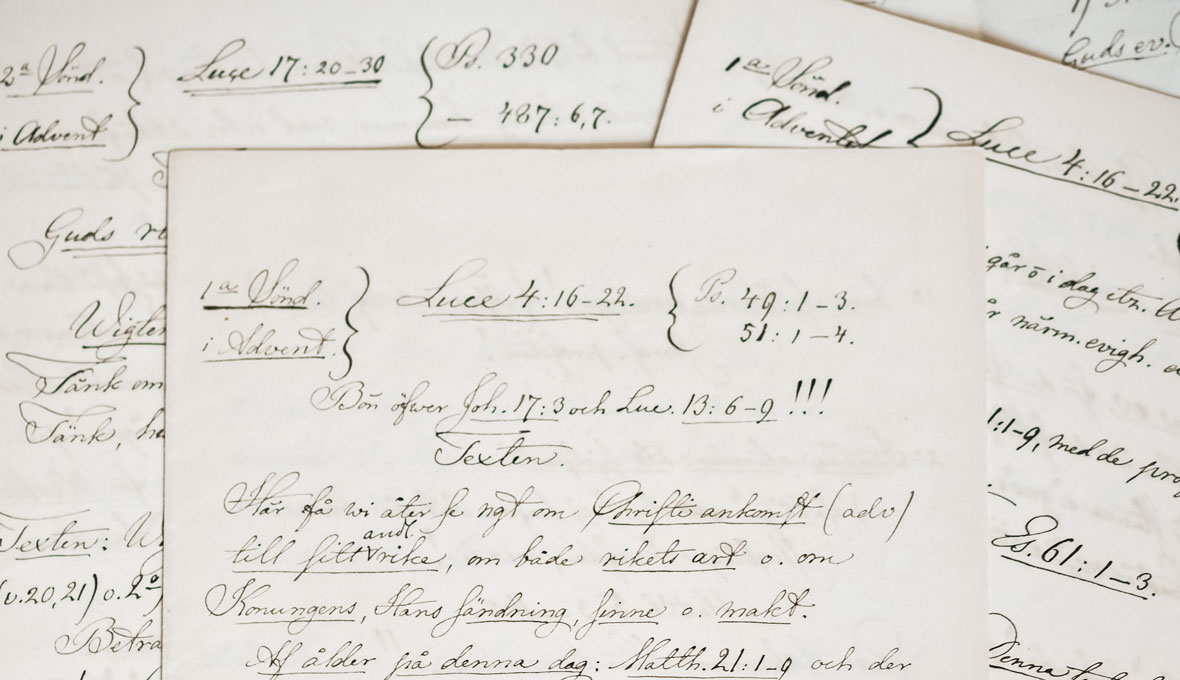 2ª Sönd.
i Advent
Luce 17:20-30
Ps. 330
— 487: 6,7.
Guds
Wigler
Tänk om
Tänk, ha
Texten:
(v.20,21) o. 2º
Betra
1ª Sönd.
i Advent.
Luce 4:16-22.
Ps. 49:1-3.
51:1-4.
Bön öfwer Joh. 17:3 och Luc. 13:6-9 !!!
Texten.
Här få wi åter se ngt om Christi ankomst (adv)
andl.
till sitt rike, om både rikets art o. om
Konungens, Hans sändning, sinne o. makt.
Af ålder på denna dag: Matth. 21:1-9 och der
Guds ev.
1ª Sönd.
i Advent
Luce 4:16-22.
går ö i dag etn.
närm. evigh.
1:1-9, med de
Es. 61:1-3.
Denna